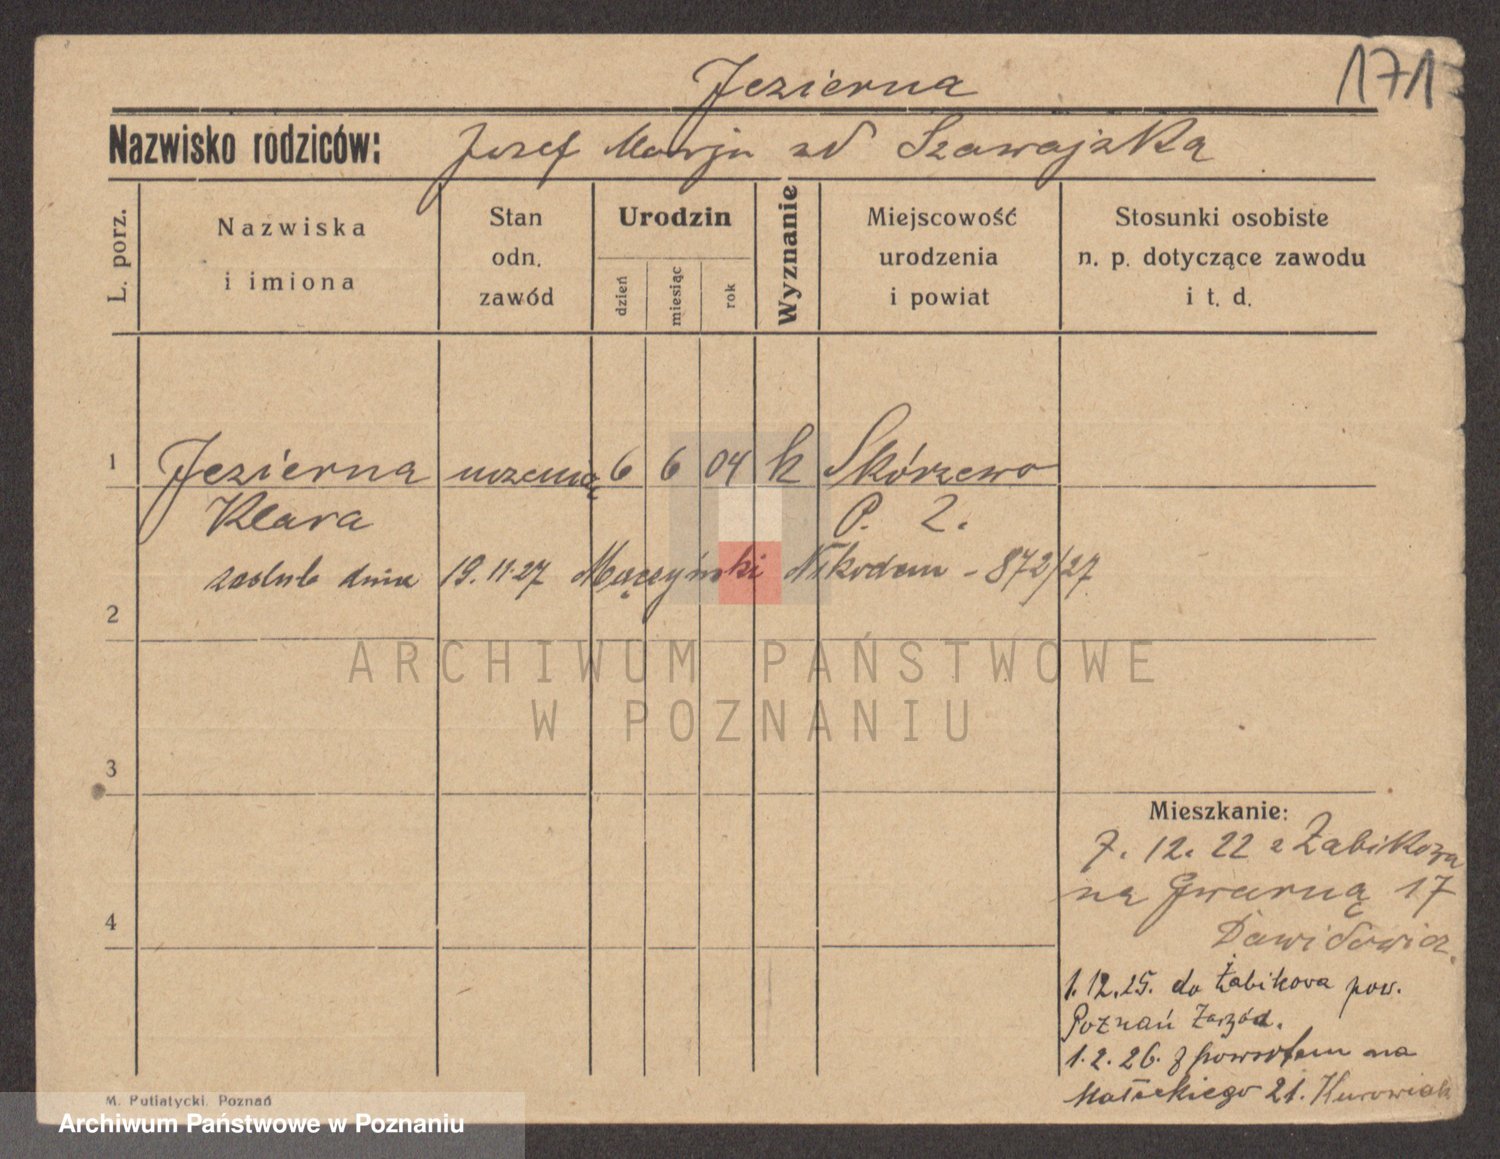 171
Jezierna
Nazwisko rodziców: Josef Marja zd Szawajzką
L. porz.
Nazwiska
i imiona
Stan
odn.
zawód
Urodzin
dzień
miesiąc
rok
Wyznanie
Miejscowość
urodzenia
i powiat
Stosunki osobiste
n. p. dotyczące zawodu
i t. d.
1 Jezierna 6 6 04 k Skórzewo
Klara P. Z.
zaślub dnia 19.11.27 Mączyński Nikodem - 872/27
2
ARCHIWUM PAŃSTWOWE
W POZNANIU
3
Mieszkanie:
7. 12. 22 z Żabikowa
na Gwarną 17
Dawidowicz.
4
1.12.25. do Żabikova pow.
Poznań
1.2.26. z powrotem na
Małeckiego 21. Kurowiak
M. Putiatycki, Poznań
Archiwum Państwowe w Poznaniu